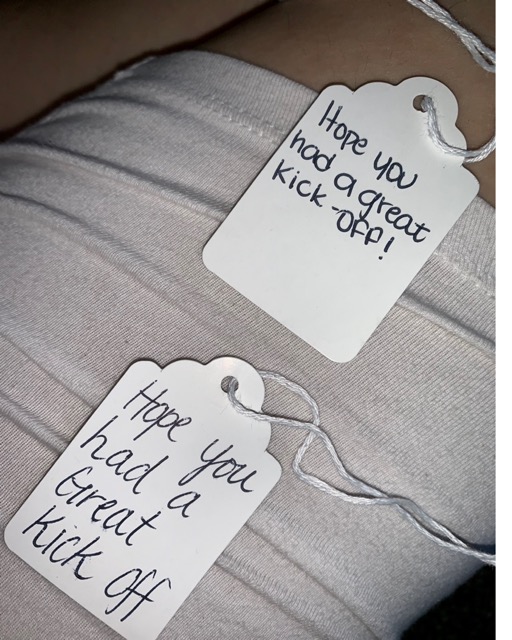 Hope you
had a great
Kick-Off!
Hope you
had a
Great
Kick off